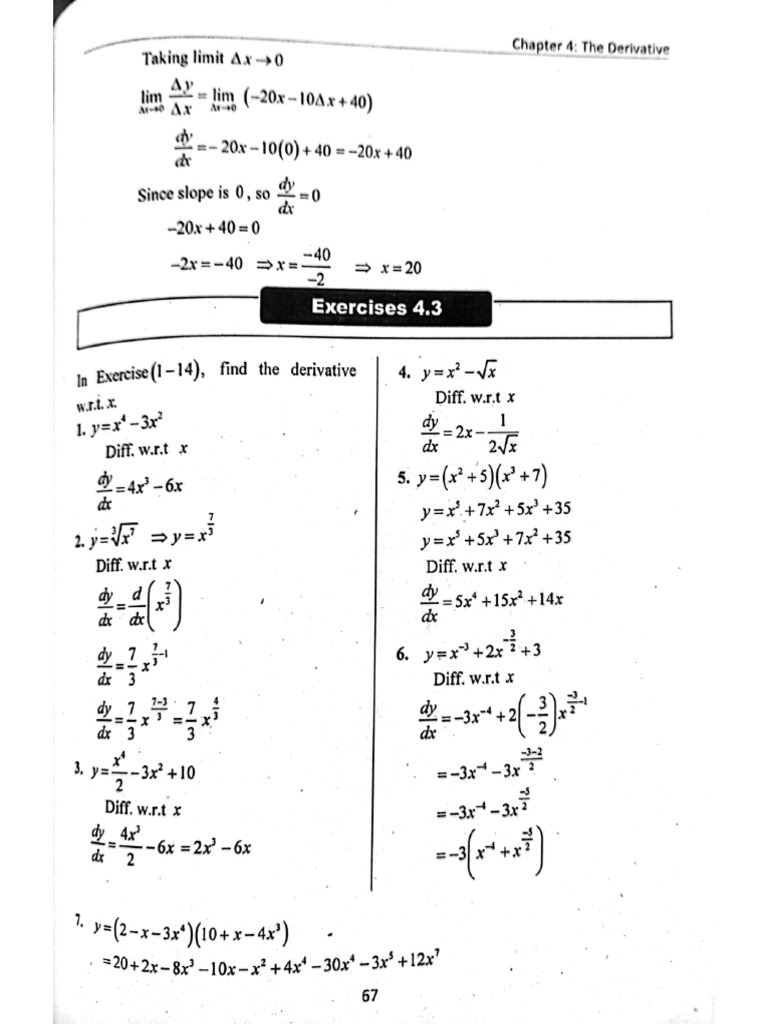 Chapter 4: The Derivative
Taking limit Δx→0
lim Δx→0 Δy/Δx = lim Δx→0 (−20x−10Δx+40)
dy/dx = −20x−10(0)+40 = −20x+40
Since slope is 0, so dy/dx = 0
−20x+40=0
−2x=−40 ⇒ x = −40/−2 ⇒ x=20
Exercises 4.3
In Exercise(1−14), find the derivative
w.r.t. x.
1. y=x⁴−3x²
Diff. w.r.t x
dy/dx = 4x³−6x
2. y=∛x⁷ ⇒ y=x^(7/3)
Diff. w.r.t x
dy/dx = d/dx (x^(7/3))
dy/dx = 7/3 x^(7/3−1)
dy/dx = 7/3 x^((7−3)/3) = 7/3 x^(4/3)
3. y = x⁴/2 −3x²+10
Diff. w.r.t x
dy/dx = 4x³/2 −6x = 2x³−6x
4. y=x²−√x
Diff. w.r.t x
dy/dx = 2x− 1/(2√x)
5. y=(x²+5)(x³+7)
y=x⁵+7x²+5x³+35
y=x⁵+5x³+7x²+35
Diff. w.r.t x
dy/dx = 5x⁴+15x²+14x
6. y=x⁻³+2x^(−3/2)+3
Diff. w.r.t x
dy/dx = −3x⁻⁴+2(−3/2)x^(−3/2−1)
=−3x⁻⁴−3x^((−3−2)/2)
=−3x⁻⁴−3x^(−5/2)
=−3(x⁻⁴+x^(−5/2))
7. y=(2−x−3x⁴)(10+x−4x³)
=20+2x−8x³−10x−x²+4x⁴−30x⁴−3x⁵+12x⁷
67